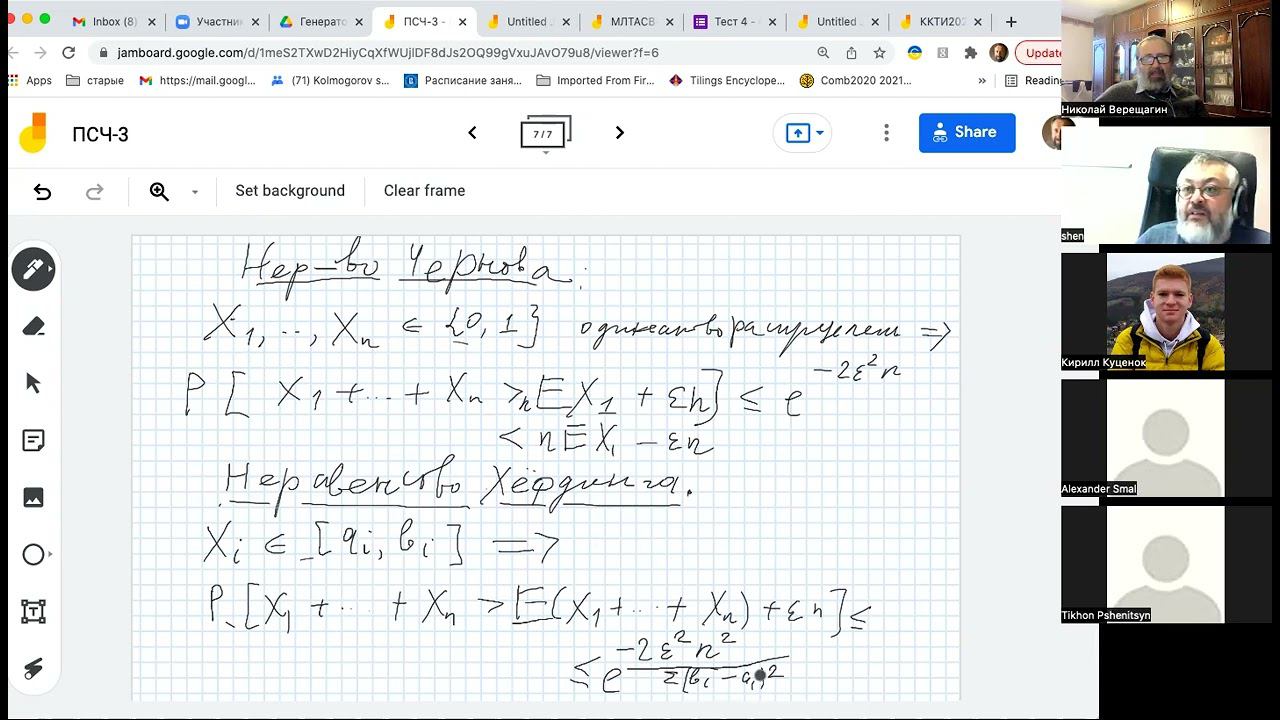 Inbox (8)
Участник
Генерато
ПСЧ-3 -
Untitled
МЛТАСВ
Тест 4 -
Untitled
ККТИ202
jamboard.google.com/d/1meS2TXwD2HivCqXfWUjlDF8dJs2OQ99gVxuJAvO79u8/viewer?f=6
Update
Apps
старые
https://mail.googl...
(71) Kolmogorov s...
Расписание заня...
Imported From Fir...
Tilings Encyclope...
Comb2020 2021...
»
Reading
ПСЧ-3
7/7
Share
Set background
Clear frame
Нер-во Чернова:
X₁, .., Xₙ ∈ {0, 1} одинаково распределен =>
P [ X₁ + ... + Xₙ > nEX₁ + εn] ≤ e^(-2ε²n)
< nEX₁ - εn
Неравенство Хёфдинга.
Xᵢ ∈ [aᵢ, bᵢ] =>
P [X₁ + ... + Xₙ > E(X₁ + ... + Xₙ) + εn] ≤
≤ e^(-2ε²n² / Σ(bᵢ - aᵢ)²)
Николай Верещагин
shen
Кирилл Куценок
Alexander Smal
Tikhon Pshenitsyn